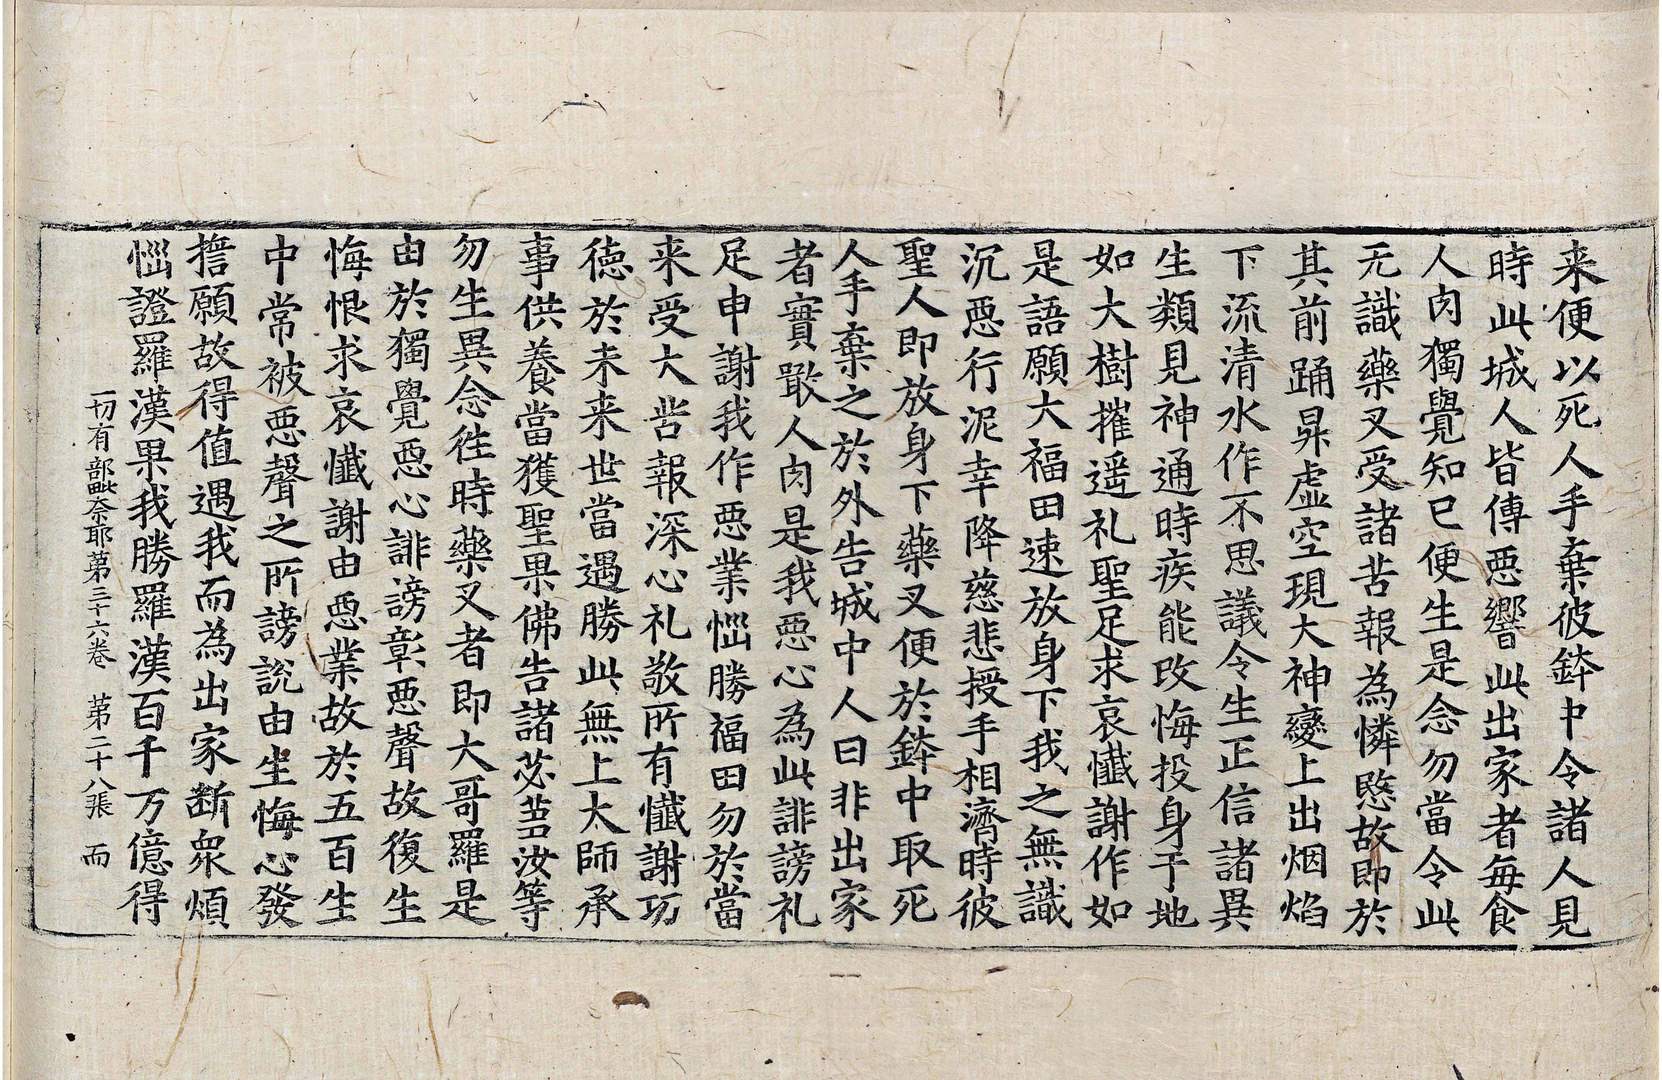 来便以死人手棄彼鉢中令諸人見
時此城人皆傳惡響此出家者每食
人肉獨覺知已便生是念勿當令此
无識藥叉受諸苦報為憐愍故即於
其前踊昇虛空現大神變上出烟焰
下流清水作不思議令生正信諸異
生類見神通時疾能改悔投身于地
如大樹摧遥礼聖足求哀懺謝作如
是語願大福田速放身下我之無識
沉惡行泥幸降慈悲授手相濟時彼
聖人即放身下藥叉便於鉢中取死
人手棄之於外告城中人曰非出家
者實噉人肉是我惡心為此誹謗礼
足申謝我作惡業惱勝福田勿於當
来受大苦報深心礼敬所有懺謝功
德於未来世當遇勝此無上大師承
事供養當獲聖果佛告諸苾芻汝等
勿生異念徃時藥叉者即大哥羅是
由於獨覺惡心誹謗彰惡聲故復生
悔恨求哀懺謝由惡業故於五百生
中常被惡聲之所謗說由坐悔心發
擔願故得值遇我而為出家斷衆煩
惱證羅漢果我勝羅漢百千万億得
一切有部毗奈耶第三十六卷 第二十八張 而